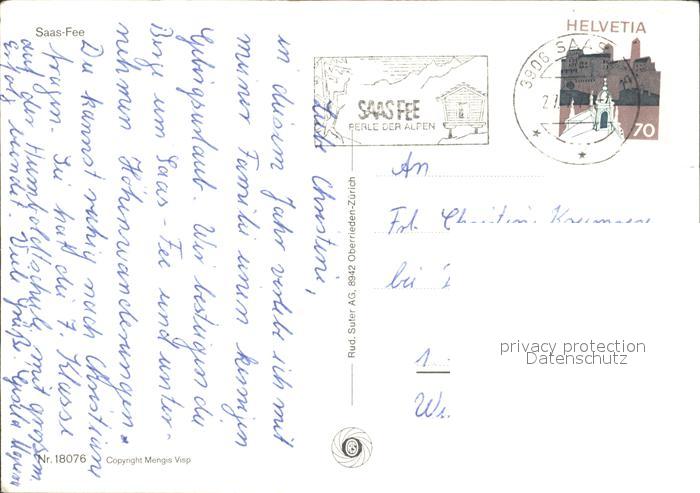 Saas-Fee
Liebe Christine,
in diesem Jahr verlebe ich mit
meiner Familie einen kurzen
Gebirgsurlaub. Wir besteigen die
Berge um Saas-Fee und unter-
nehmen Höhenwanderungen.
Du kannst ruhig nach Christine
fragen. Sie hat die 7. Klasse
auf der Humboldtschule mit grossem
Erfolg beendet. Viele Grüße
Nr. 18076
Copyright Mengis Visp
Rud. Suter AG, 8942 Oberrieden-Zürich
SAAS FEE
PERLE DER ALPEN
3906 SAAS
HELVETIA
70
An
Frl. Christine
bei
1
privacy protection
Datenschutz